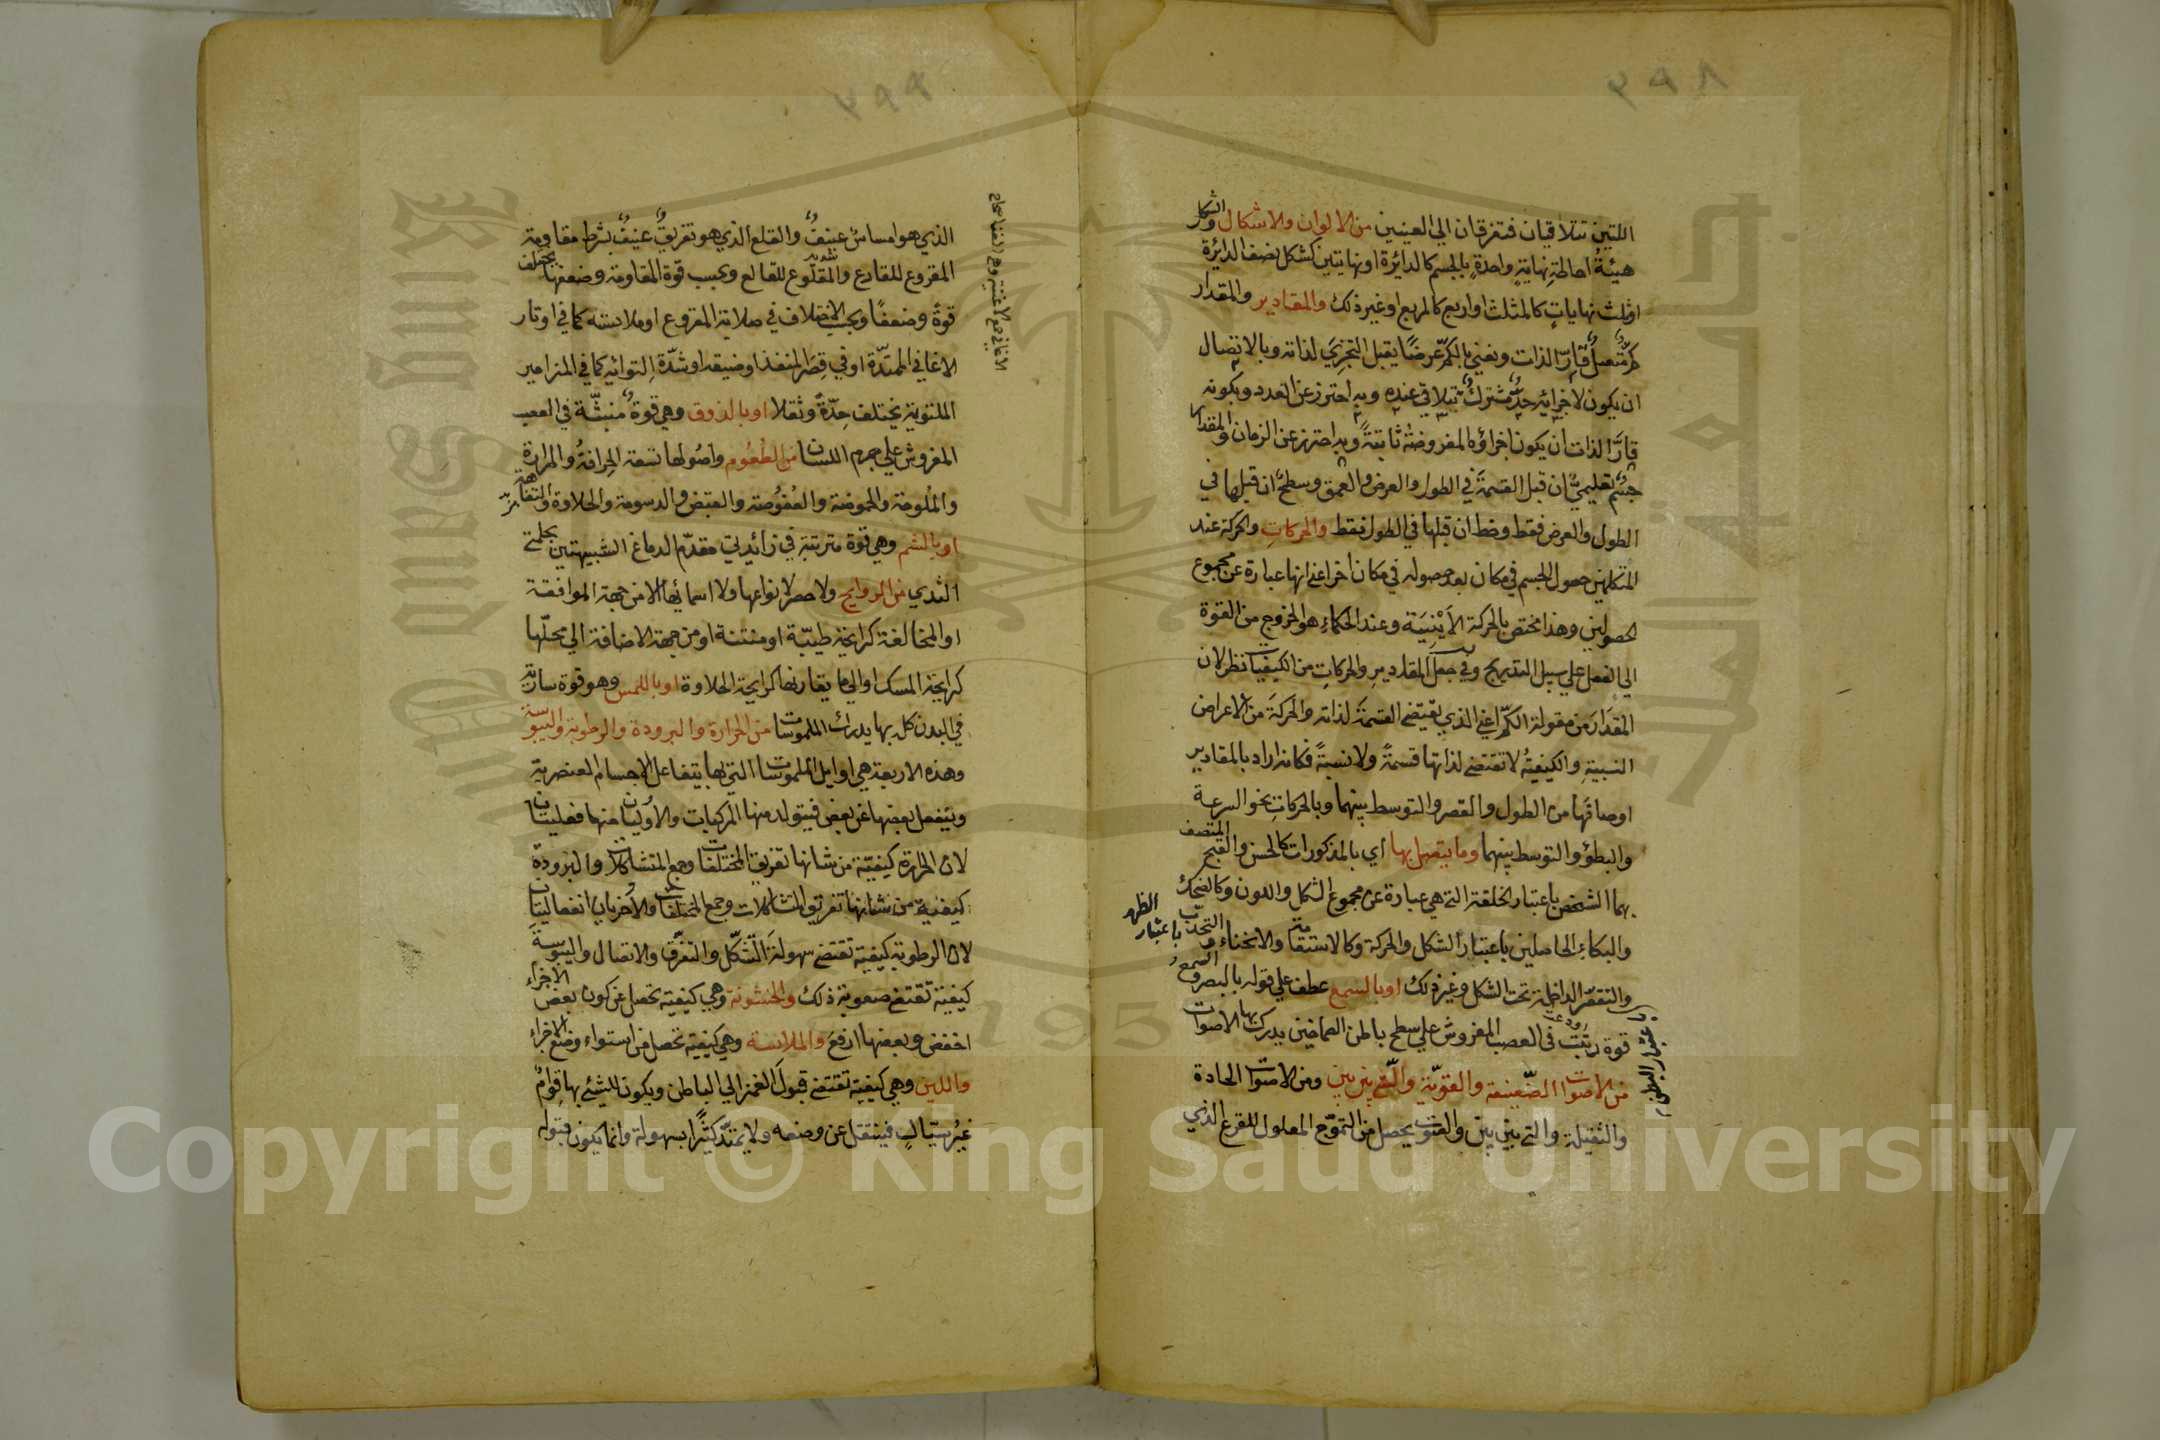 اللتين تتلاقيان فتفترقان الى العينين من الالوان والاشكال والشكل
هيئة احاطة نهاية واحدة بالجسم كالدائرة او نهايتين كشكل نصف الدائرة
او ثلث نهايات كالمثلث او اربع كالمربع او غير ذلك والمقادير والمقدار
كم متصل قار الذات ونعني بالكم عرضا يقبل التجزي لذاته وبالاتصال
ان يكون لاجزائه حد مشترك تتلاقى عنده وبه احترز عن العدد وبكونه
قار الذات ان يكون اجزاؤه المفروضة ثابتة وبه احترز عن الزمان والمقدار
جسم تعليمي ان قبل القسمة في الطول والعرض والعمق وسطح ان قبلها في
الطول والعرض فقط وخط ان قبلها في الطول فقط والحركات والحركة عند
المتكلمين حصول الجسم في مكان بعد حصوله في مكان اخر اعني انها عبارة عن مجموع
الحصولين وهذا مختص بالحركة الاينية وعند الحكماء هو الخروج من القوة
الى الفعل على سبيل التدريج وفي جعل المقادير والحركات من الكيفيات نظر لان
المقدار من مقولة الكم اعني الذي يقتضي القسمة لذاته والحركة من الاعراض
النسبية والكيفية لا تقتضي لذاتها قسمة ولا نسبة فكانه اراد بالمقادير
اوصافها من الطول والقصر والتوسط بينهما وبالحركات نحو السرعة
والبطؤ والتوسط بينهما وما يتصل بها اي بالمذكورات كالحسن والقبح المتصف
بهما الشخص باعتبار الخلقة التي هي عبارة عن مجموع الشكل واللون وكالضحك
والبكاء الحاصلين باعتبار الشكل والحركة وكالاستقامة والانحناء والتحدب
باعتبار الظهر
والتقعر الداخلة تحت الشكل وغير ذلك او بالسمع عطف على قوله بالبصر والسمع
باعتبار البطن
قوة رتبت في العصب المفروش على سطح باطن الصماخين يدرك بها الاصوات
من الاصوات الضعيفة والقوية والتي بين بين ومن الاصوات الحادة
والثقيلة والتي بين بين والصوت يحصل من التموج المعلول للقرع الذي
الذي هو امساس عنيف والقلع الذي هو تفريق عنيف بشرط مقاومة
المقروع للقارع والمقلوع للقالع وبحسب قوة المقاومة وضعفها يختلف
قوة وضعفا وبحسب الاختلاف في صلابة المقروع او ملاسته كما في اوتار
الاغاني الممتدة او في قصر المنفذ او ضيقه او شدة التوائه كما في المزامير
الملتوية يختلف حدة وثقلا او بالذوق وهي قوة منبثة في العصب
المفروش على جرم اللسان من الطعوم واصولها تسعة الحرافة والمرارة
والملوحة والحموضة والعفوصة والقبض والدسومة والحلاوة والتفاهة
او بالشم وهي قوة مترتبة في زائدتي مقدم الدماغ الشبيهتين بحلمتي
الثدي من الروايح ولا حصر لانواعها ولا اسماء لها الا من جهة الموافقة
او المخالفة كرايحة طيبة او منتنة او من جهة الاضافة الى محلها
كرايحة المسك او الى ما يقارنها كرايحة الحلاوة او باللمس وهو قوة سارية
في البدن كله بها يدرك الملموسات من الحرارة والبرودة والرطوبة واليبوسة
وهذه الاربعة هي اوايل الملموسات التي بها يتفاعل الاجسام العنصرية
وينفعل بعضها عن بعض فيتولد منها المركبات والاوليان منها فعليتان
لان الحرارة كيفية من شانها تفريق المختلفات وجمع المتشاكلات والبرودة
كيفية من شانها تفريق المتشاكلات وجمع المختلفات والاخريان انفعاليتان
لان الرطوبة كيفية تقتضي سهولة التشكل والتفرق والاتصال واليبوسة
كيفية تقتضي صعوبة ذلك والخشونة وهي كيفية تحصل عن كون بعض الاجزاء
اخفض وبعضها ارفع والملاسة وهي كيفية تحصل من استواء وضع الاجزاء
واللين وهي كيفية تقتضي قبول الغمز الى الباطن ويكون للشيء بها قوام
غير سيال فينتقل عن وضعه ولا يمتد كثيرا بسهولة وانما يكون قبوله
King Saud University
1957
Copyright © King Saud University